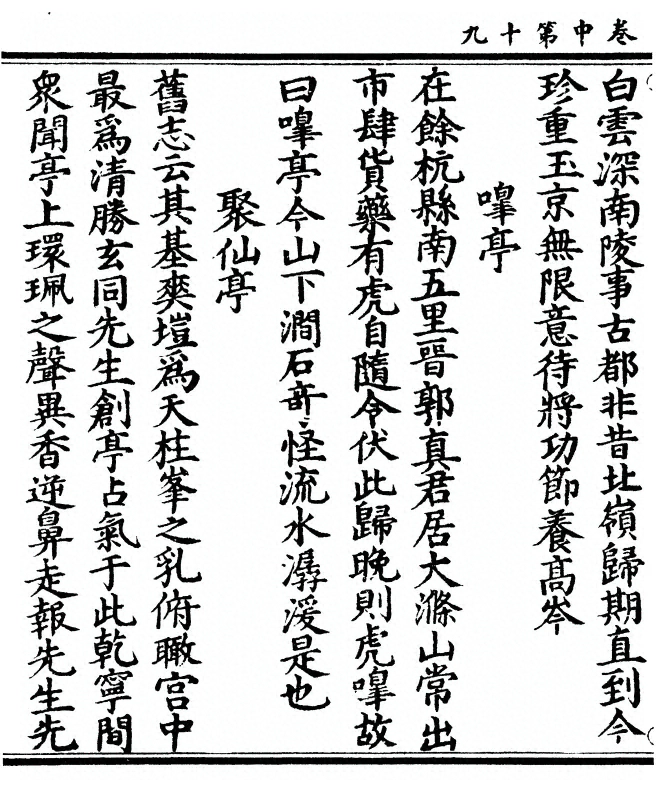 卷中第十九
白雲深南陵事古都非昔北嶺歸期直到今
珍重玉京無限意待將功節養高岑
嘷亭
在餘杭縣南五里晉郭真君居大滌山常出
市肆貨藥有虎自隨令伏此歸晚則虎嘷故
曰嘷亭今山下澗石奇怪流水潺湲是也
聚仙亭
舊志云其基奭塏爲天柱峯之乳俯瞰宮中
最爲清勝玄同先生創亭占氣于此乾寧間
衆聞亭上環珮之聲異香逆鼻走報先生先